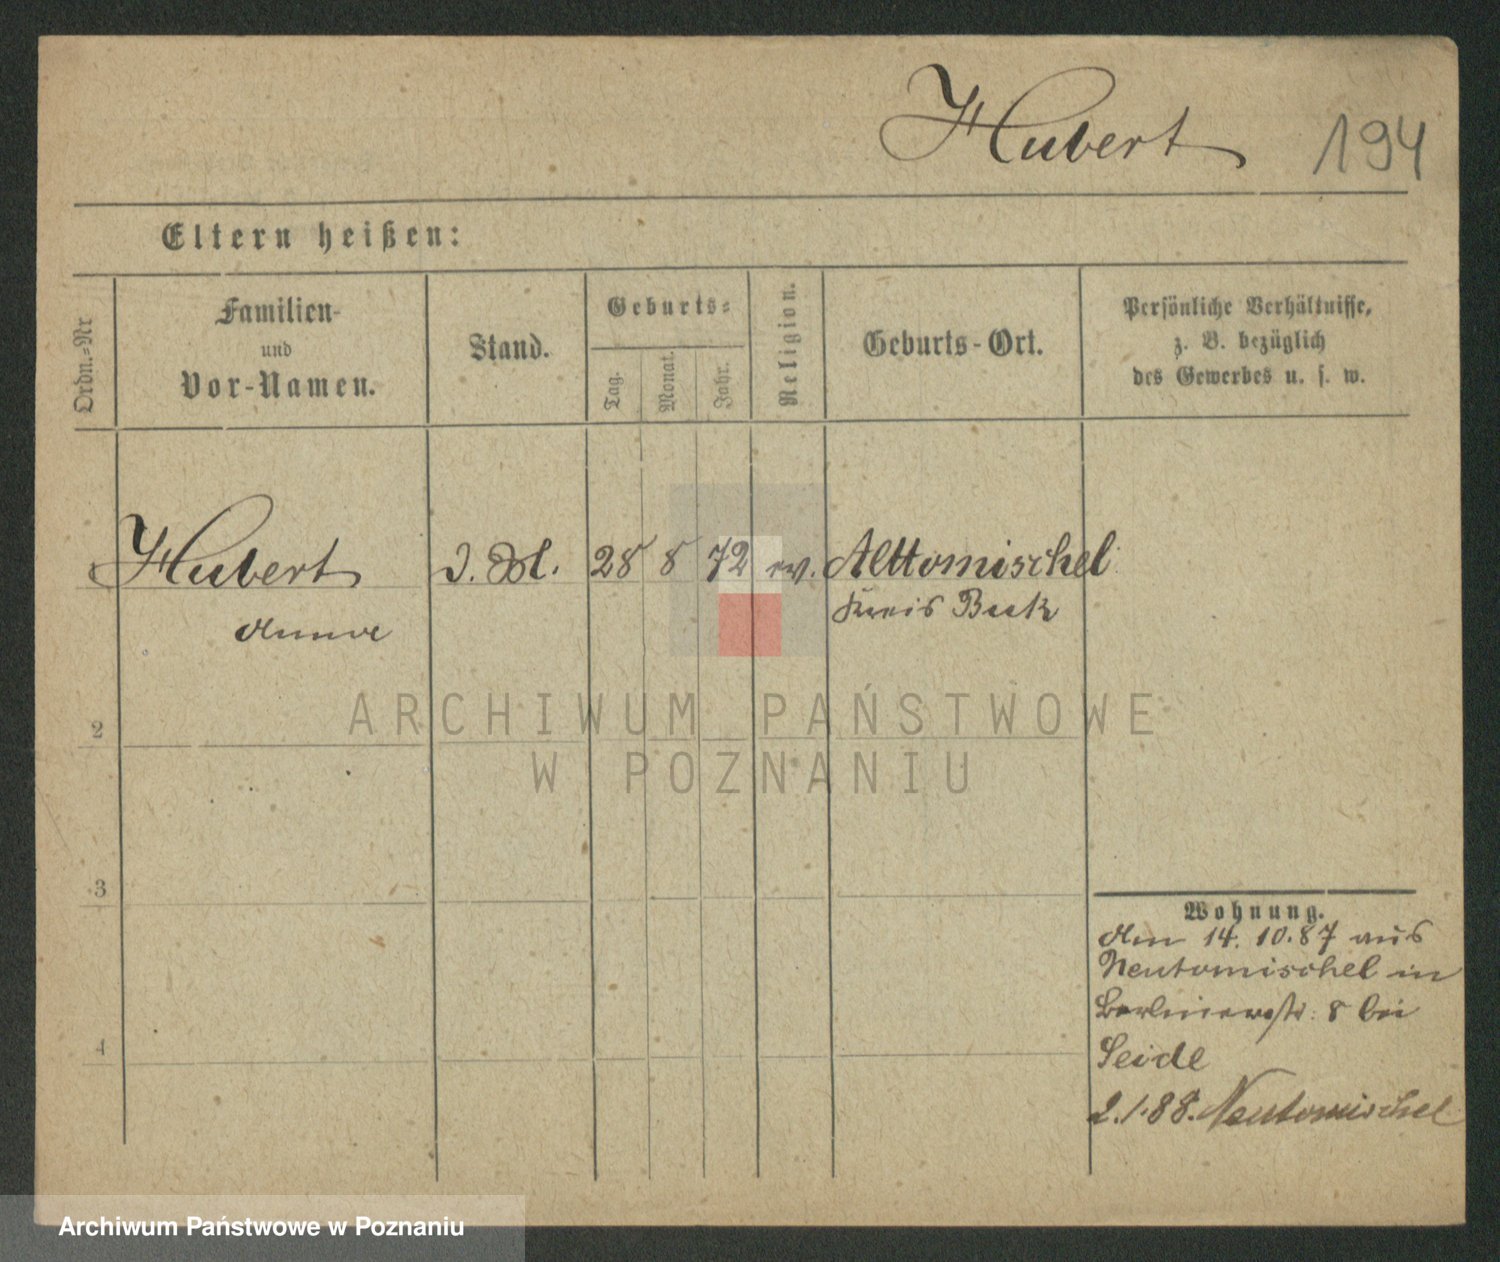 Hubert 194
Eltern heißen:
Ordn.-Nr
Familien-
und
Vor-Namen.
Stand.
Geburts-
Tag.
Monat.
Jahr.
Religion.
Geburts-Ort.
Persönliche Verhältnisse,
z. B. bezüglich
des Gewerbes u. s. w.
Hubert 28 8 72 ev. Alttomischel
Anna Kreis Buk
2
ARCHIWUM PAŃSTWOWE
W POZNANIU
3
Wohnung.
Am 14. 10. 87 aus
Neutomischel in
Berlinerstr: 8 bei
Seide
4
2. 1. 88. Neutomischel
Archiwum Państwowe w Poznaniu